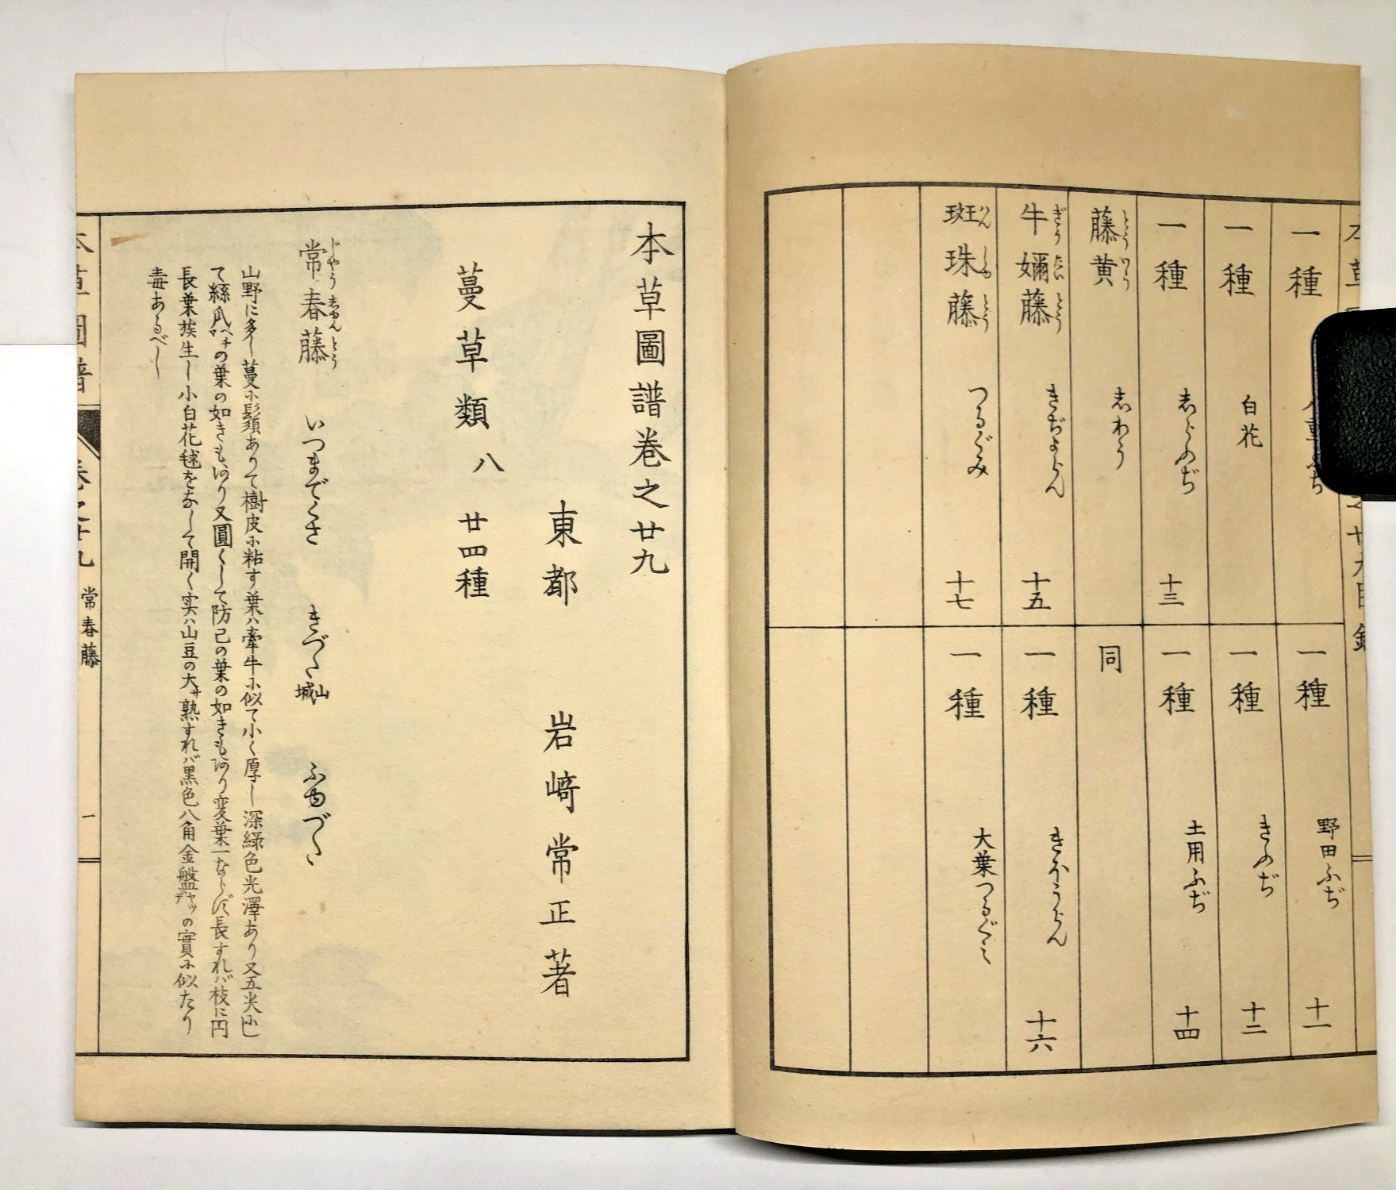 一種
一種 野田ふぢ 十一
一種 白花
一種 きふぢ 十二
一種 志らふぢ 十三
一種 土用ふぢ 十四
藤黄 とうわう 志わう
同
牛嬭藤 ぎう だい とう きぢよらん 十五
一種 きぶようらん 十六
斑珠藤 はん しゆ とう つるぐみ 十七
一種 大葉つるぐミ
本草圖譜巻之廿九
東都 岩﨑常正著
蔓草類八 廿四種
常春藤 じやう志ゆんとう いつまでくさ きづた 山城 ふゆづた
山野に多し蔓に鬚ありて樹皮に粘す葉ハ牽牛に似て小く厚し深緑色光澤あり又五尖にし
て絲瓜ヘチマの葉の如きもあり又圓くして防己の葉の如きもあり変葉一ならず長すれバ枝に円
長葉簇生し小白花毬をなして開く実ハ山豆の大サ熟すれバ黒色八角金盤ヤツデの實に似たり
毒あるべし
本草圖譜 巻之廿九 常春藤 一